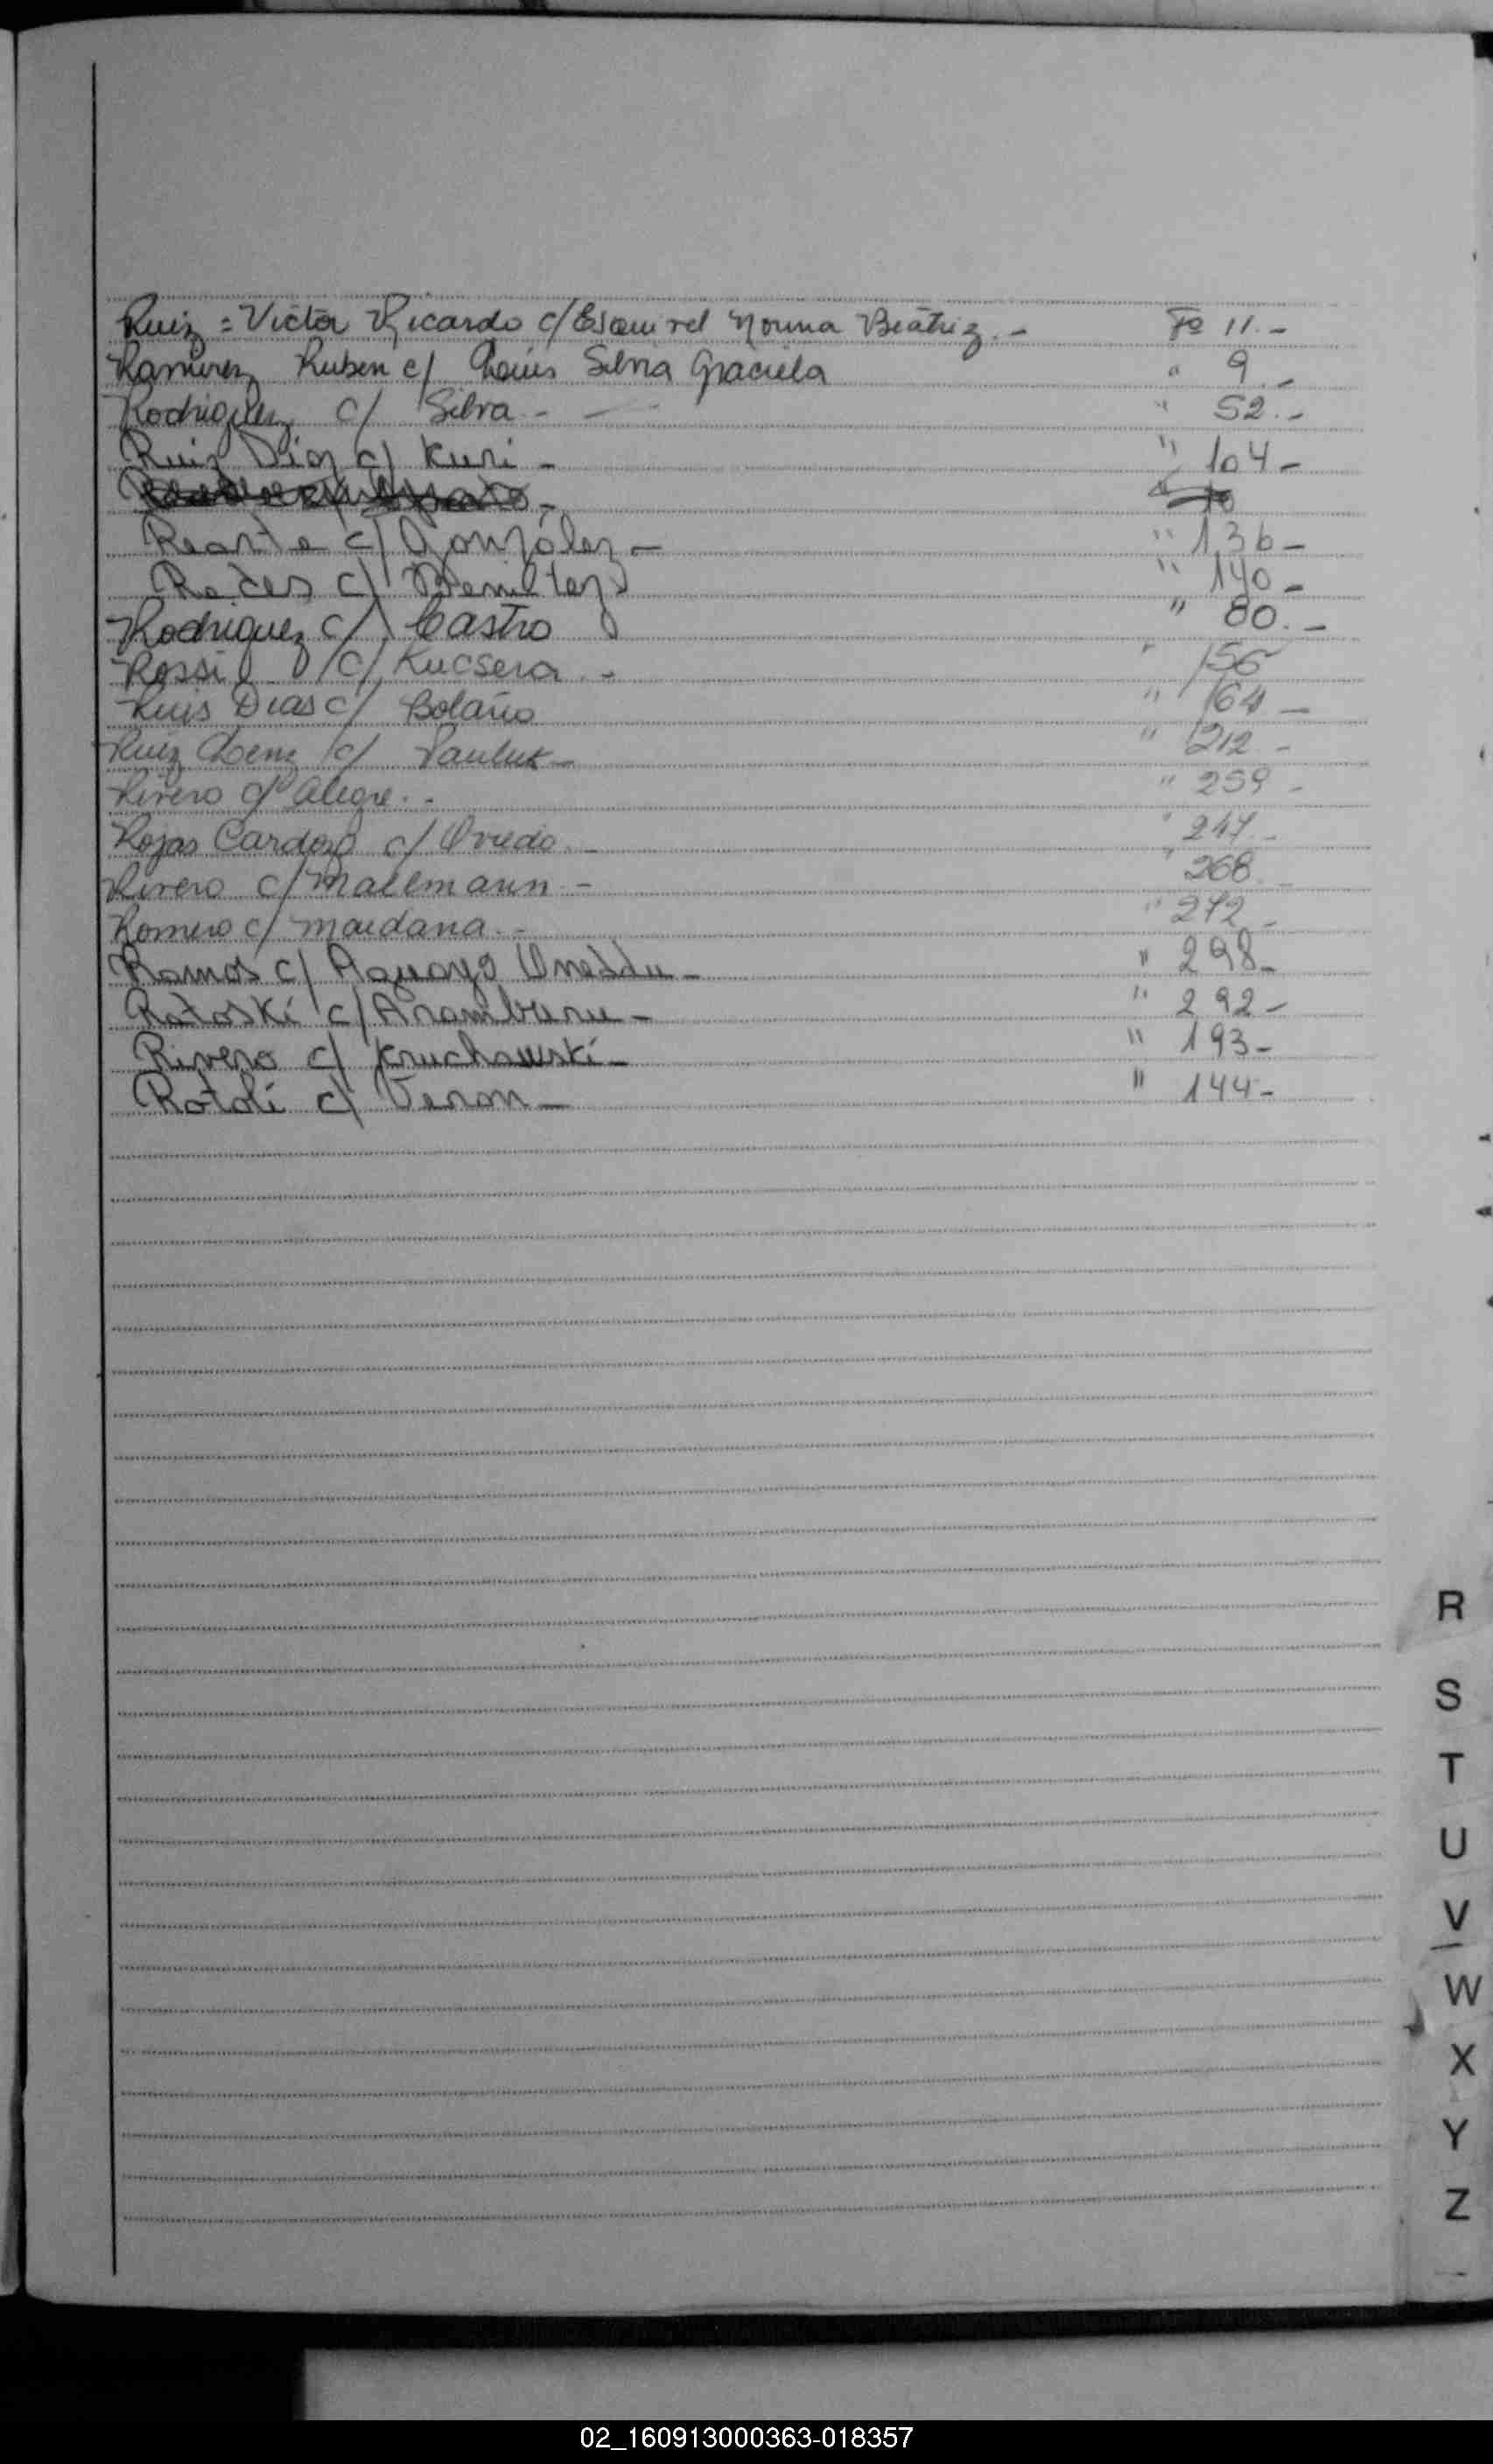 Ruiz = Victor Ricardo c/ Esquivel Norma Beatriz.- Fº 11.-
Ramirez Ruben c/ Silvia Graciela " 9.-
Rodriguez c/ Silva - " 52.-
Ruiz Diaz c/ Kuri - " 104-
Rearte c/ González - " 136-
c/ Benitez " 140-
Rodriguez c/ Castro " 80.-
Rossi c/ Kucsera .- " 156
Ruis Dias c/ Bolaño " 164 -
Ruiz c/ Pauluk - " 212 -
Rivero c/ Alegre.- " 259 -
Rojas Cardozo c/ Oviedo.- " 247.-
Rivero c/ Mallmann.- " 268.-
Romero c/ Maidana.- " 272 -
Ramos c/ Aguayo - " 298-
Ratoski c/ Aramburu - " 292-
Rivero c/ Kruchowski - " 193-
Rotoli c/ Veron - " 144-
R
S
T
U
V
W
X
Y
Z
02_160913000363-018357